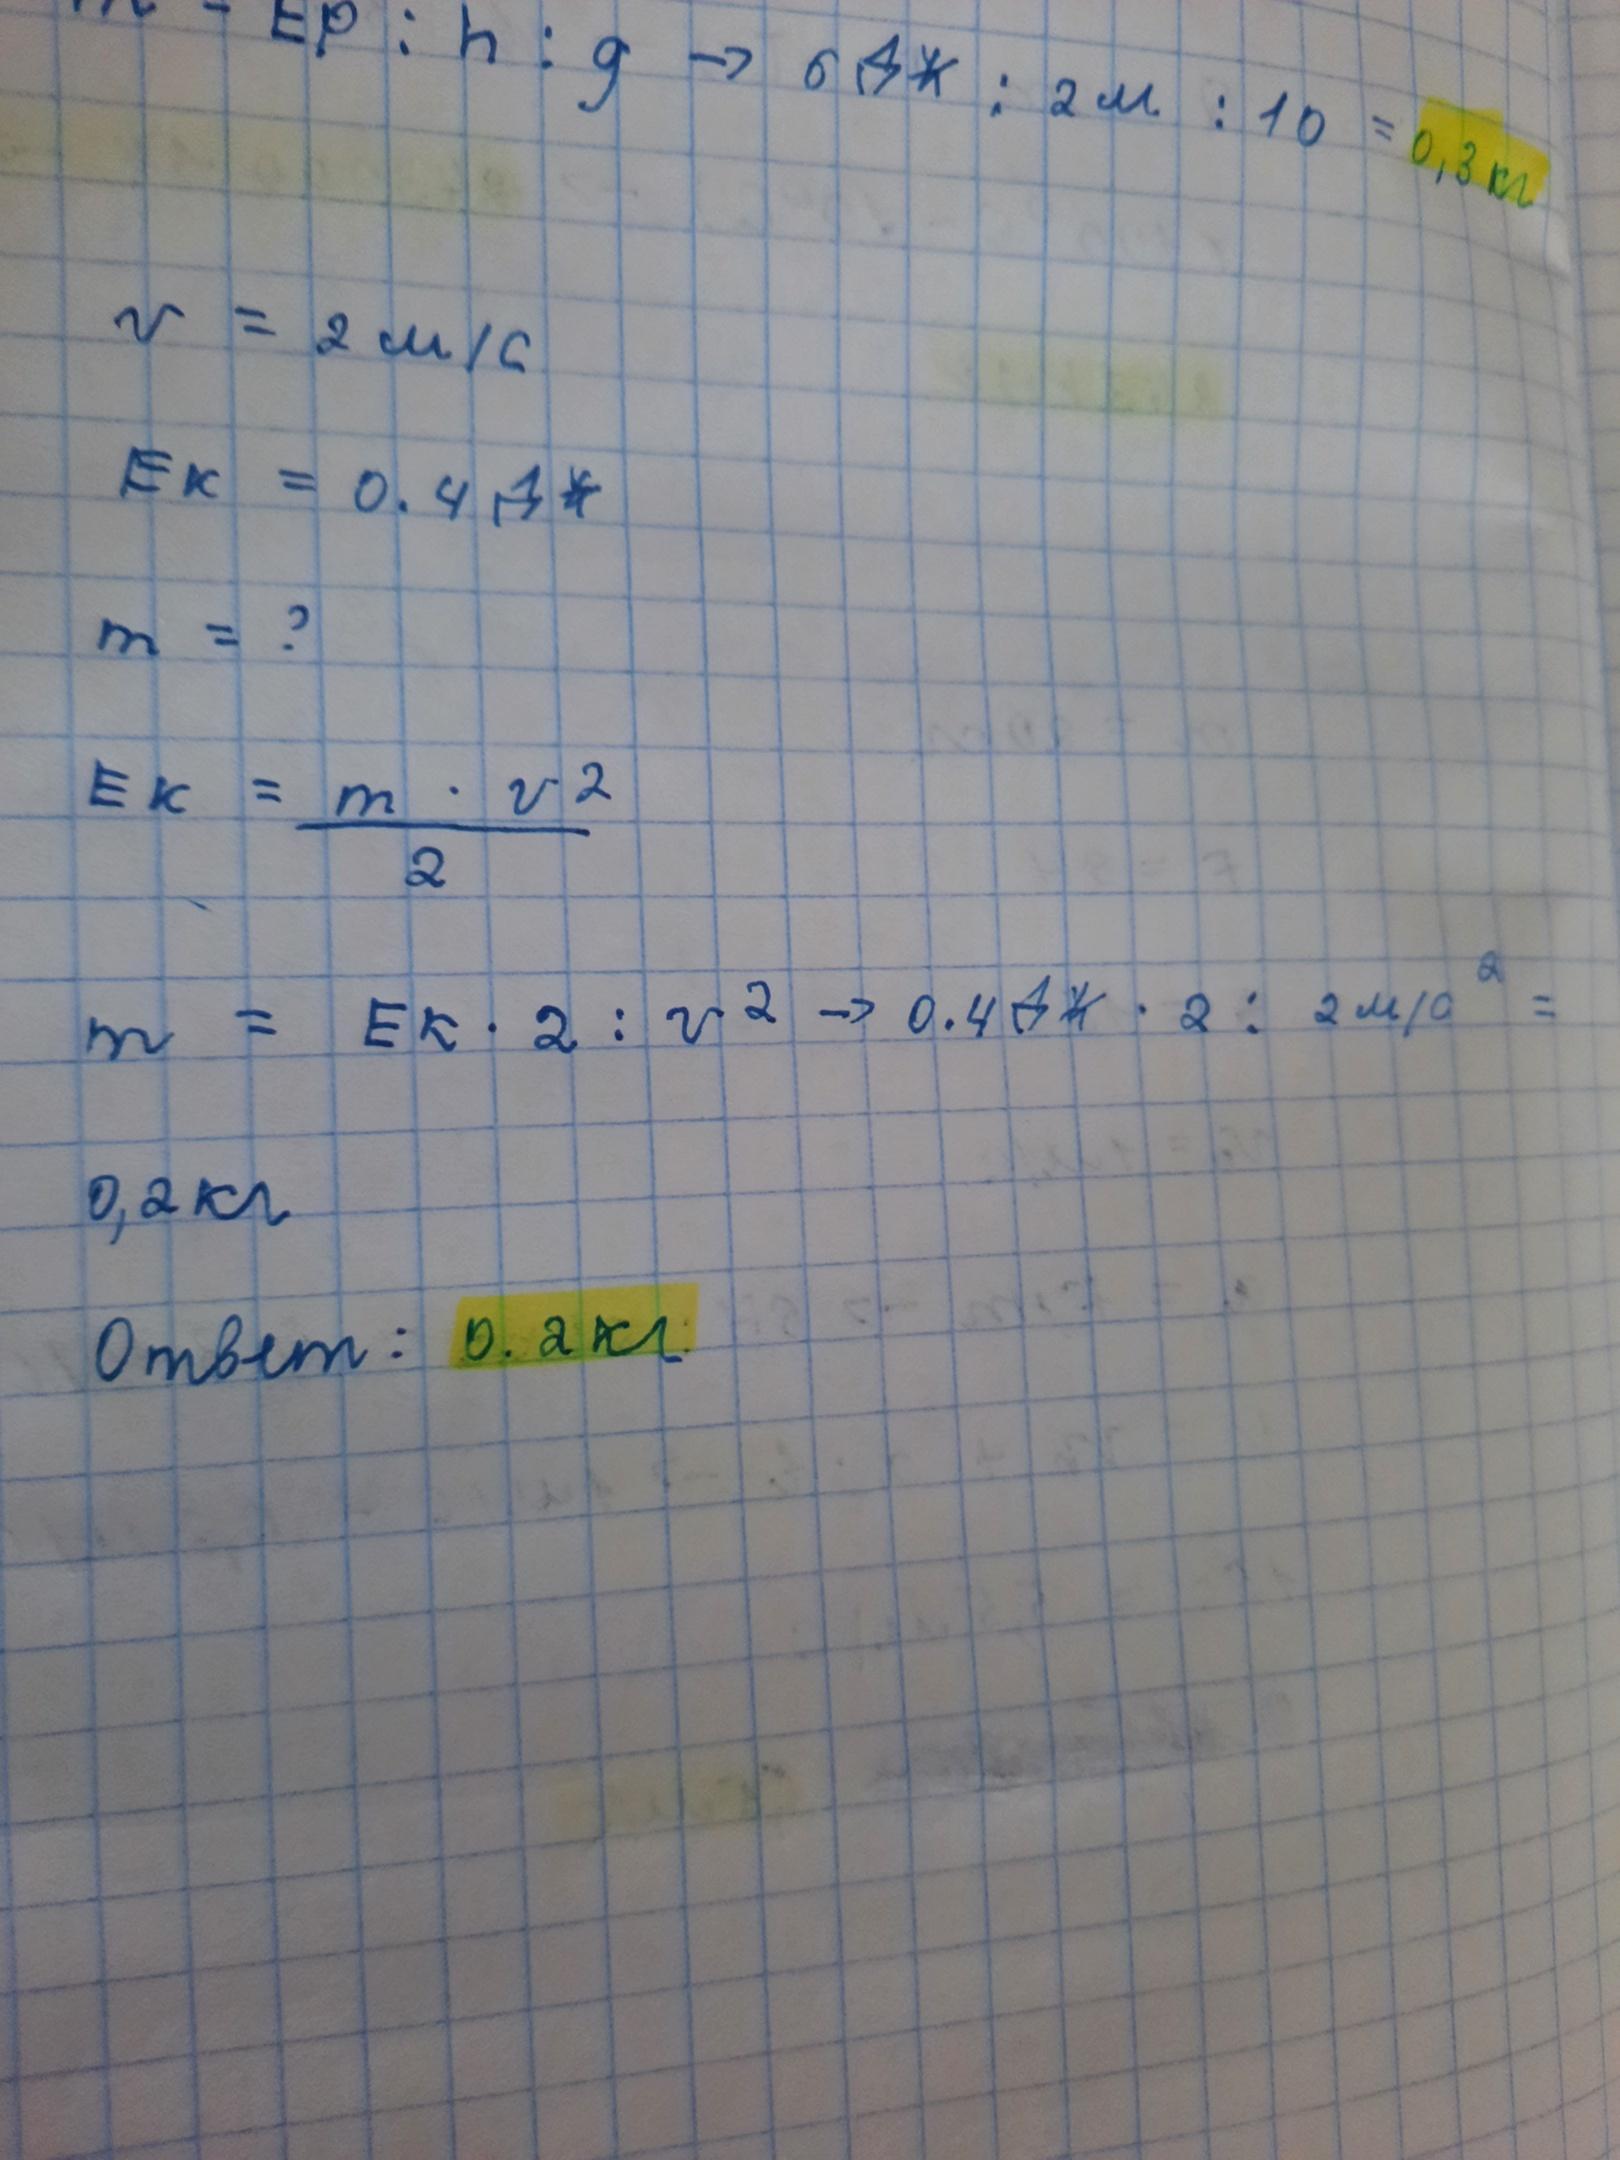 m = Ep : h : g → 6 Дж : 2 м : 10 = 0,3 кг
v = 2 м/с
Ек = 0.4 Дж
m = ?
Ек = m · v²
2
m = Ек · 2 : v² → 0.4 Дж · 2 : 2 м/с² =
0,2 кг
Ответ: 0.2 кг.